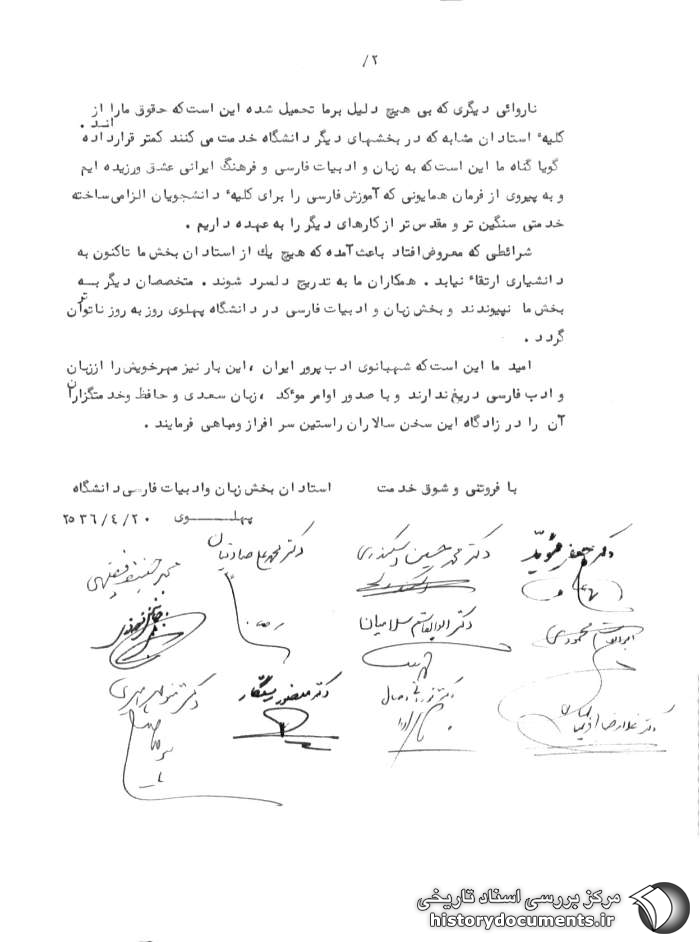 ۲/
ناروائی دیگری که بی هیچ دلیل برما تحمیل شده این است که حقوق مارا از
کلیهٔ استادان مشابه که در بخشهای دیگر دانشگاه خدمت می کنند کمتر قرارداده اند .
گویا گناه ما این است که به زبان و ادبیات فارسی و فرهنگ ایرانی عشق ورزیده ایم
و به پیروی از فرمان همایونی که آموزش فارسی را برای کلیهٔ دانشجویان الزامی ساخته
خدمتی سنگین تر و مقدس تر از کارهای دیگر را به عهده داریم .
شرائطی که معروض افتاد باعث آمده که هیچ یك از استادان بخش ما تاکنون به
دانشیاری ارتقاء نیابد . همکاران ما به تدریج دلسرد شوند . متخصصان دیگر بسه
بخش ما نپیوندند و بخش زبان و ادبیات فارسی در دانشگاه پهلوی روز به روز ناتوان تر
گردد .
امید ما این است که شهبانوی ادب پرور ایران ، این بار نیز مهرخویش را اززبان
و ادب فارسی دریغ ندارند و با صدور اوامر موٴکد ، زبان سعدی و حافظ وخدمتگزاران
آن را در زادگاه این سخن سالاران راستین سر افراز ومباهی فرمایند .
با فروتنی و شوق خدمت استادان بخش زبان وادبیات فارسی دانشگاه
پهلــــوی ۲۵۳۶/۴/۲۰
دکتر جعفر موید
دکتر محمد حسین اسکندری
دکتر محمد علی صادقیان
دکتر ابوالقاسم سلامیان
دکتر منصور رستگار
مرکز بررسی اسناد تاریخی
historydocuments.ir